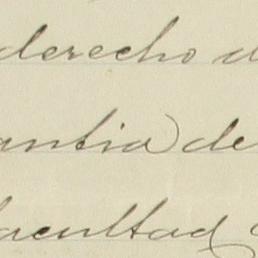 derecho d
antia) de
facultad